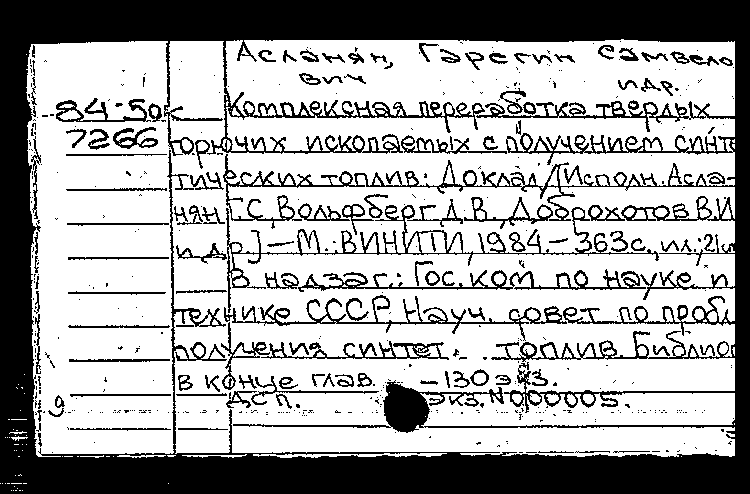 Асланян, Гарегин Самвело
вич и др.
84-50к Комплексная переработка твердых
7266 горючих ископаемых с получением синте
тических топлив: Доклад/[Исполн. Асла-
нян Г.С, Вольфберг Д.В., Доброхотов В.И
и др.]—М.: ВИНИТИ, 1984.—363с., ил.; 21см
В надзаг.: Гос. ком. по науке и
технике СССР, Науч. совет по пробл
получения синтет. топлив. Библиог
в конце глав —130 экз.
9 ДСП. Экз. N000005.